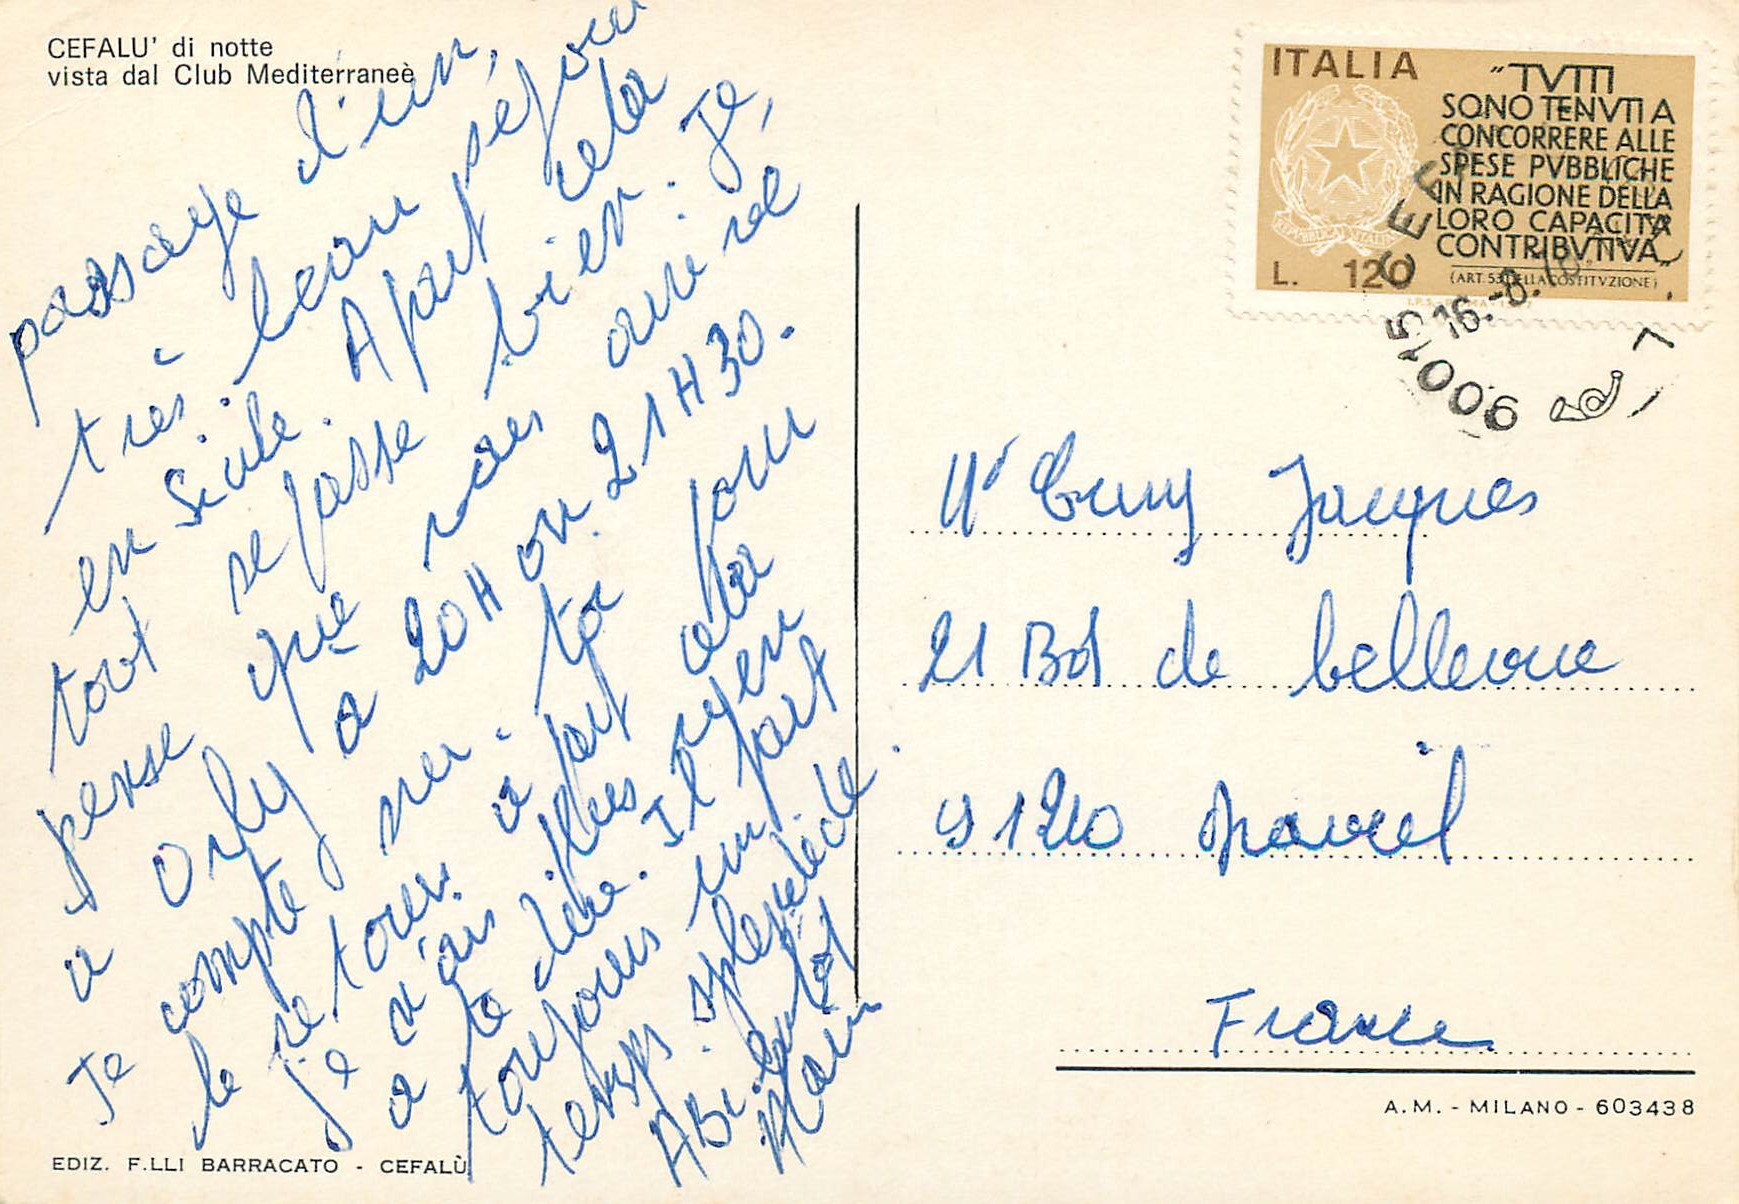 CEFALU' di notte
vista dal Club Mediterraneè
passage d'un,
très beau séjour
en Sicile. Apart cela
tout se passe bien. Je,
pense que nous arrivé
a Orly a 20H ou 21H30.
Je compte sur toi pour
le retour. a part cela
je n'ais plus rien
a te dire. Il fait
toujours un
temps splendide.
A Bientot
Alain
EDIZ. F.LLI BARRACATO - CEFALÙ
ITALIA
"TVTTI
SONO TENVTI A
CONCORRERE ALLE
SPESE PVBBLICHE
IN RAGIONE DELLA
LORO CAPACITA
CONTRIBVTIVA„
(ART. 53 DELLA COSTITVZIONE)
L. 120
REPVBBLICA ITALIANA
90015 CEF
16.-8.
Mr Cuny Jacques
21 Bd de bellevue
91210 Draveil
France
A.M. - MILANO - 603438